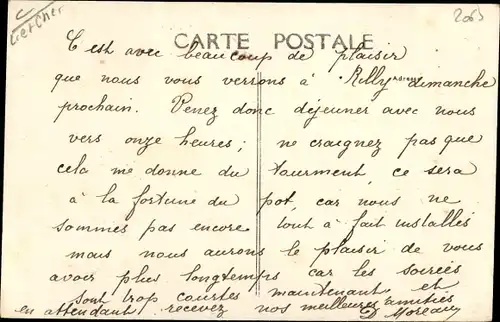 Loir et Cher
2065
CARTE POSTALE
C'est avec beaucoup de plaisir
que nous vous verrons à Rilly dimanche
prochain. Venez donc déjeuner avec nous
vers onze heures ; ne craignez pas que
cela me donne du tourment, ce sera
à la fortune du pot, car nous ne
sommes pas encore tout à fait installés
mais nous aurons le plaisir de vous
avoir plus longtemps car les soirées
sont trop courtes maintenant et
en attendant recevez nos meilleures amitiés
Moreau